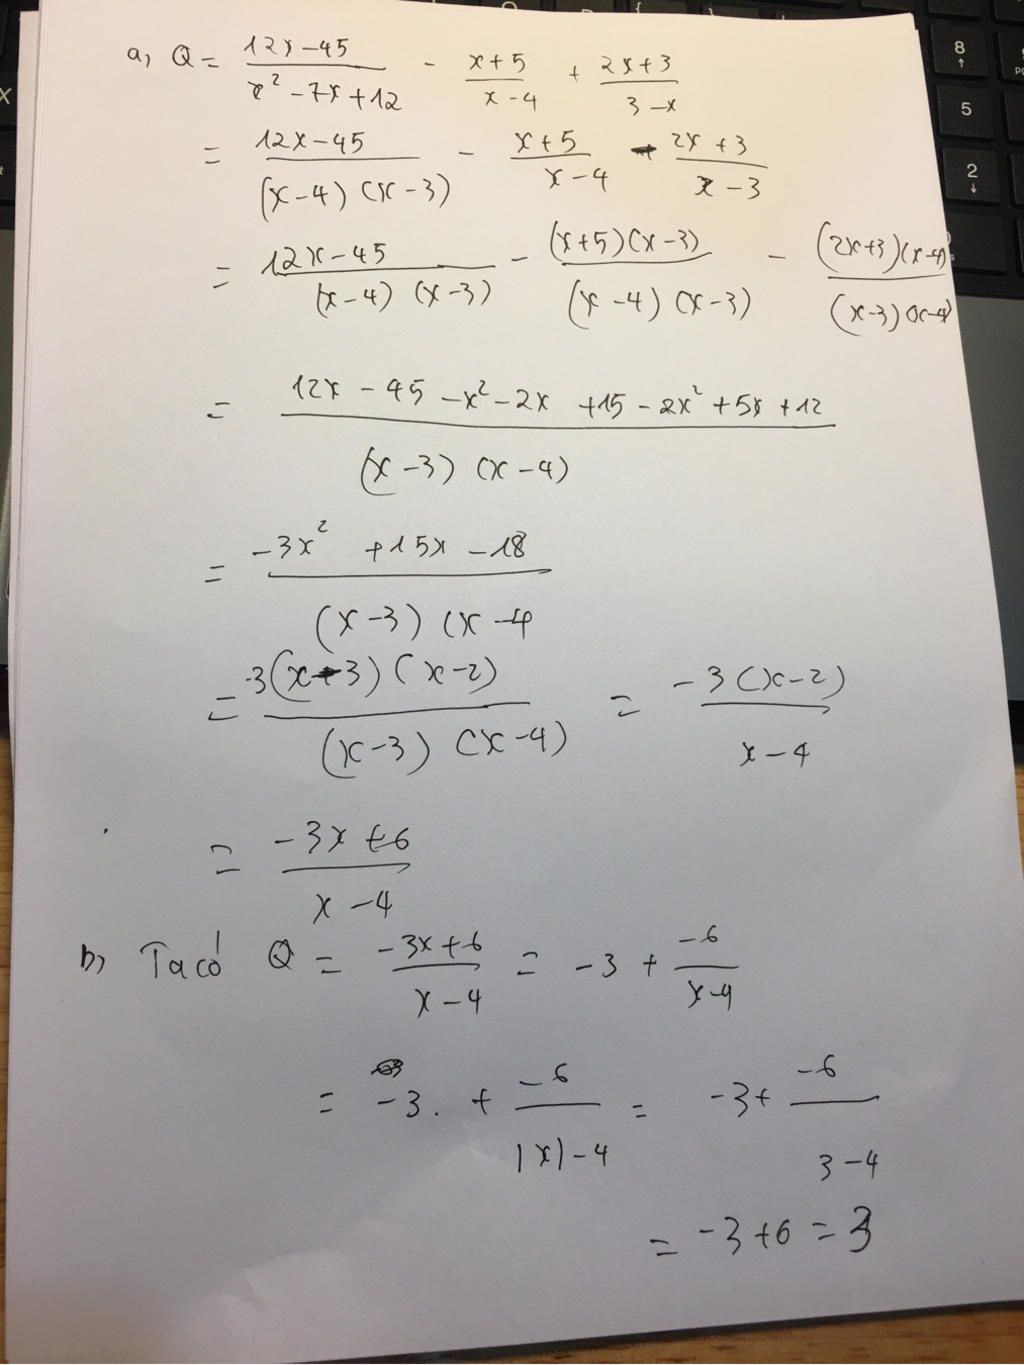 a, Q = (12x-45)/(x²-7x+12) - (x+5)/(x-4) + (2x+3)/(3-x)
= (12x-45)/((x-4)(x-3)) - (x+5)/(x-4) - (2x+3)/(x-3)
= (12x-45)/((x-4)(x-3)) - ((x+5)(x-3))/((x-4)(x-3)) - ((2x+3)(x-4))/((x-3)(x-4))
= (12x-45-x²-2x+15-2x²+5x+12)/((x-3)(x-4))
= (-3x²+15x-18)/((x-3)(x-4
= (-3(x-3)(x-2))/((x-3)(x-4)) = (-3(x-2))/(x-4)
= (-3x+6)/(x-4)
b, Ta có Q = (-3x+6)/(x-4) = -3 + (-6)/(x-4)
= -3. + (-6)/(|x|-4) = -3 + (-6)/(3-4)
= -3+6 = 3
8
5
2